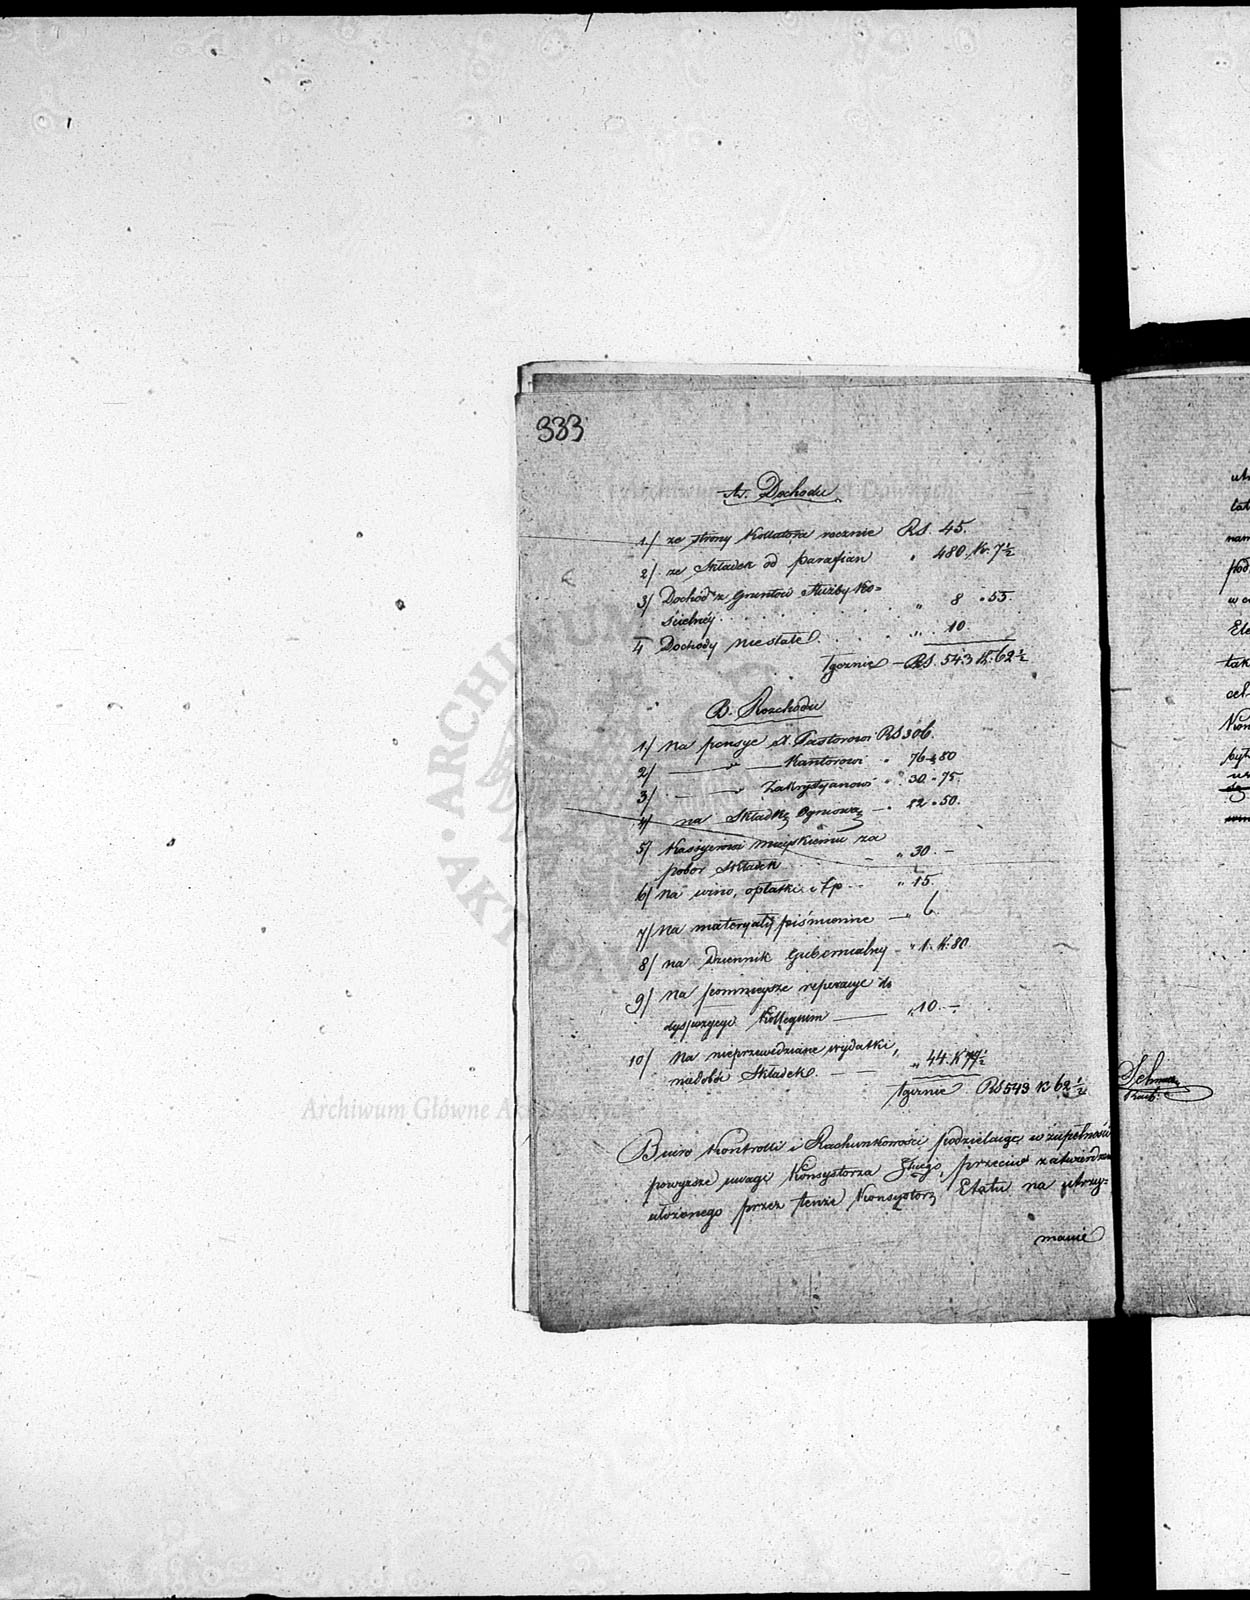 333
A. Dochodu
1./ ze strony Kollatora rocznie RS. 45.
2/. ze Składek od parafian " 480. K. 7½
3/ Dochód z gruntów Służby Ko=
ścielnéj . . . . " 8 " 55
4 Dochody niestałe . . . " 10.
Łącznie — RS. 543 K. 62½
B. Rozchodu
1./ Na pensye X. Pastorowi RS 306.
2/ — " — Kantorowi " 76 " 50
3/ — " — Zakrystyanowi " 30 " 75.
4/ na Składkę Ogniową — " 22 " 50.
5/ Kassyerowi miejskiemu za
pobór Składek — " 30. —
6/ Na wino, opłatki i t.p. — " 15.
7/ Na materyały piśmienne — " 6.
8/ na Dziennik Gubernialny — " 1. K. 80.
9/ Na pomniejsze reperacye do
dyspozycyi Kollegium — " 10. —
10/ Na nieprzewidziane wydatki,
niedobór Składek. — — " 44. K 77½
Łącznie RS 543 K 62½
Biuro Kontrolli i Rachunkowości podzielając w zupełności
powyższe uwagi Konsystorza przeciw
ułożonego przez tenże Konsystorz Etatu na utrzy=
manie
Archiwum Główne Akt Dawnych
ARCHIWUM
AKT DAWNYCH